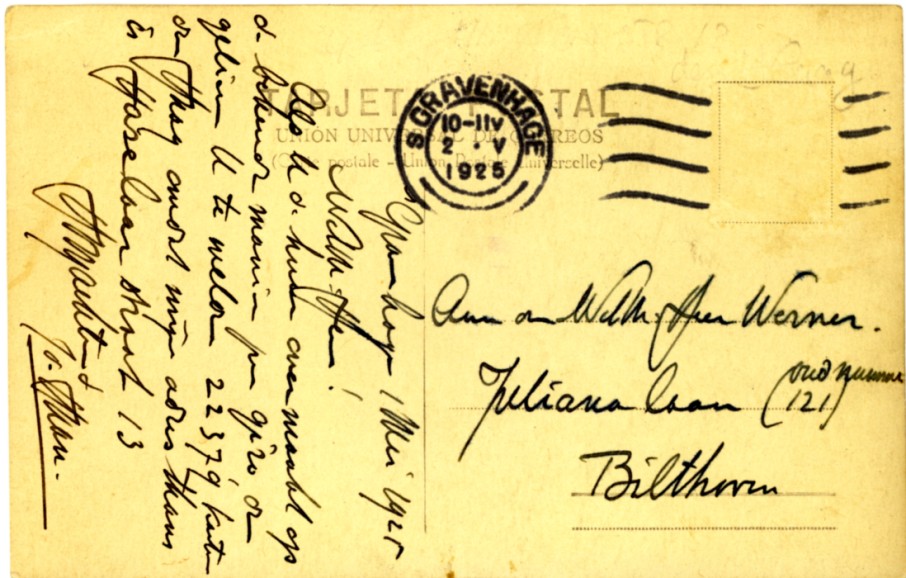 TARJETA POSTAL
UNIÓN UNIVERSAL DE CORREOS
(Carte postale - Union Postale Universelle)
S GRAVENHAGE
10-11 V
2 · V
1925
Gravenhage 1 Mei 1925
WelEd. Heer!
Als U de huur overmaakt op
de bekende manier per giro
gelieve U te melden 22379
den Haag omdat mijn adres thans
is straat 13
Aan den WelEd. Heer Werner.
Juliana laan (oud nummer
121)
Bilthoven